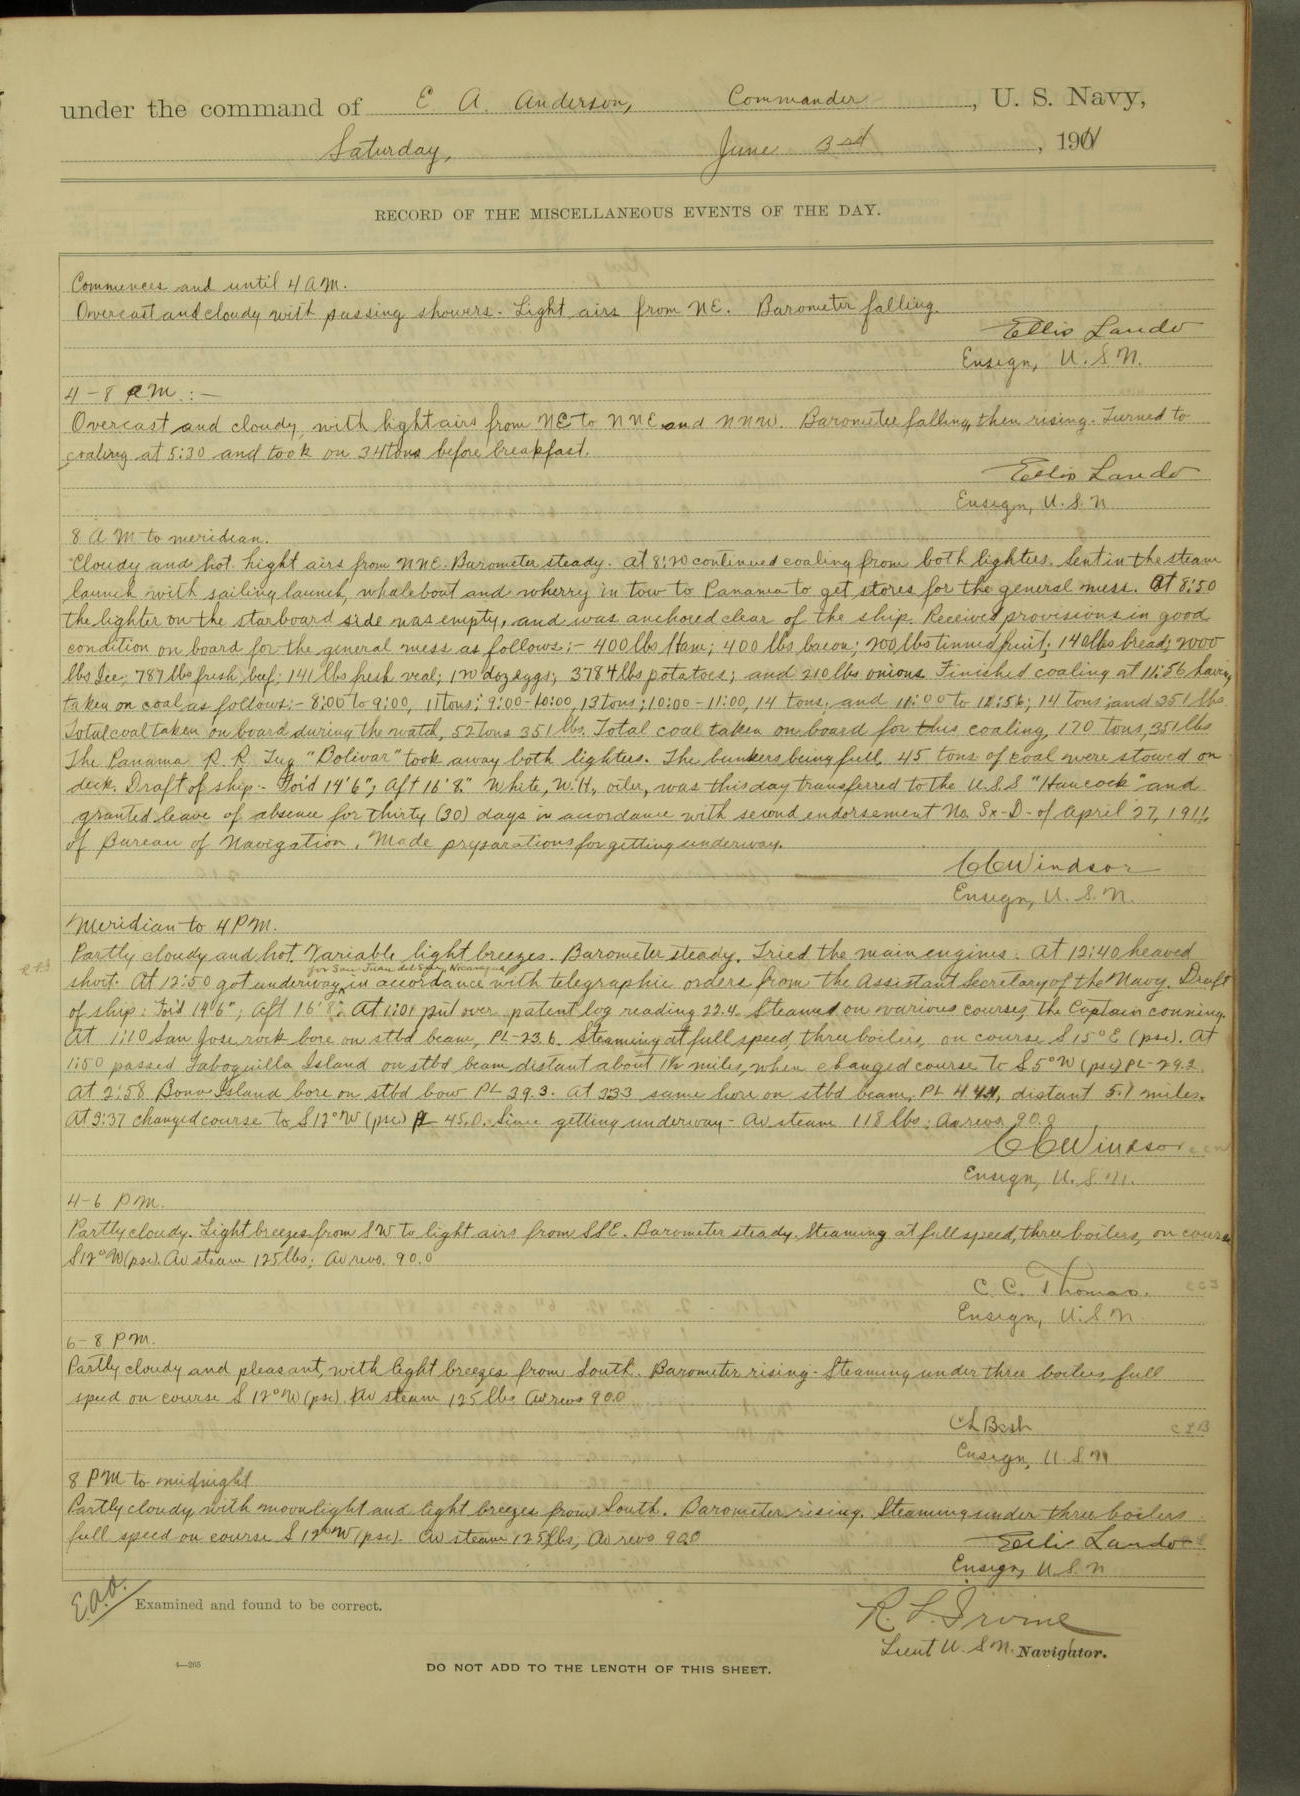 under the command of E A. Anderson, Commander, U. S. Navy,
Saturday, June 3rd, 1911
RECORD OF THE MISCELLANEOUS EVENTS OF THE DAY.
Commences and until 4 A M.
Overcast and cloudy with passing showers. Light airs from NE. Barometer falling.
Ellis Lando
Ensign, U. S. N.
4 – 8 A M :–
Overcast and cloudy, with light airs from NE to NNE and NNW. Barometer falling, then rising. Turned to
coaling at 5:30 and took on 34 tons before breakfast.
Ellis Lando
Ensign, U. S. N
8 A M to meridian.
Cloudy and hot. Light airs from NNE. Barometer steady. At 8:20 continued coaling from both lighters. Sent in the steam
launch with sailing launch, whaleboat and wherry in tow to Panama to get stores for the general mess. At 8:50
the lighter on the starboard side was empty, and was anchored clear of the ship. Received provisions in good
condition on board for the general mess as follows:– 400 lbs Ham; 400 lbs bacon; 200 lbs tinned fruit; 140 lbs bread; 2000
lbs Ice; 787 lbs fresh beef; 141 lbs fresh veal; 120 doz eggs; 3784 lbs potatoes; and 210 lbs onions. Finished coaling at 11:56 having
taken on coal as follows:– 8:00 to 9:00, 11 tons; 9:00–10:00, 13 tons; 10:00 – 11:00, 14 tons; and 11:00 to 11:56; 14 tons and 351 lbs.
Total coal taken on board during the watch, 52 tons 351 lbs. Total coal taken on board for this coaling, 170 tons, 351 lbs
The Panama R. R. Tug "Bolivar" took away both lighters. The bunkers being full, 45 tons of coal were stowed on
deck. Draft of ship – For'd 14' 6", Aft 16' 8". White, W. H., oiler, was this day transferred to the U.S.S "Hancock" and
granted leave of absence for thirty (30) days in accordance with second endorsement No. Sx-D- of April 27, 1911,
of Bureau of Navigation. Made preparations for getting underway.
C C Windsor
Ensign, U. S. N.
Meridian to 4 P M.
Partly cloudy and hot. Variable light breezes. Barometer steady. Tried the main engines. At 12:40 heaved
for San Juan del Sur, Nicaragua
short. At 12:50 got underway in accordance with telegraphic orders from the Assistant Secretary of the Navy. Draft
of ship: For'd 14' 6"; Aft 16' 8". At 1:01 put over patent log reading 22.4. Steamed on various courses, the Captain conning.
At 1:10 San Jose rock bore on stbd beam, PL – 23.6. Steaming at full speed, three boilers, on course S 15° E (psc). At
1:50 passed Taboguilla Island on stbd beam distant about 1½ miles, when changed course to S 5° W (psc) PL – 29.2.
At 2:58 Bona Island bore on stbd bow PL 39.3. At 333 same bore on stbd beam, PL 44.4, distant 5.1 miles.
At 3:37 changed course to S 12° W (psc) PL 45.0. Since getting underway – Av steam 118 lbs; Av revs. 90.0
C C Windsor
Ensign, U. S. N.
4–6 P M.
Partly cloudy. Light breezes from SW to light airs from SSE. Barometer steady. Steaming at full speed, three boilers, on course
S 12° W (psc). Av steam 125 lbs; Av revs. 90.0
C. C. Thomas.
Ensign, U. S. N
6 – 8 P M.
Partly cloudy and pleasant, with light breezes from South. Barometer rising – Steaming under three boilers full
speed on course S 12° W (psc). Av steam 125 lbs. Av revs 90.0
Ensign, U. S. N
8 P M to midnight
Partly cloudy with moonlight and light breezes from South. Barometer rising. Steaming under three boilers
full speed on course S 12° W (psc). Av steam 125 lbs, Av revs 90.0
Ellis Lando
Ensign, U. S. N
E.A.A. Examined and found to be correct.
R. L. Irvine
Lieut U. S. N. Navigator.
4—265
DO NOT ADD TO THE LENGTH OF THIS SHEET.